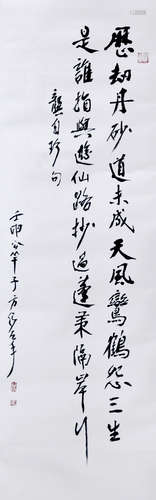 歷劫丹砂道未成天風鸞鶴怨三生
是誰指與遊仙路抄過蓬萊隔岸行
龔自珍句
壬申